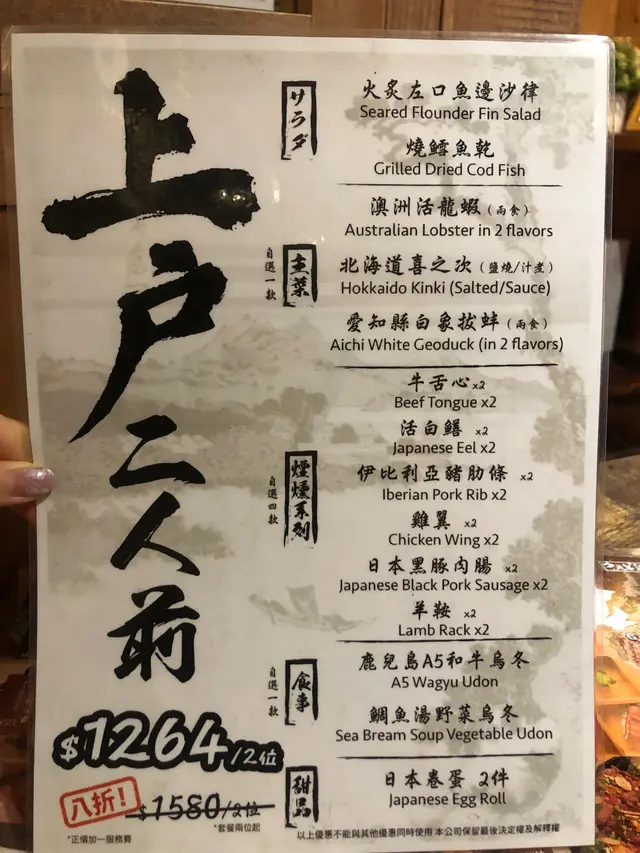 上戶二人前
サラダ
火炙左口魚邊沙律
Seared Flounder Fin Salad
燒鱈魚乾
Grilled Dried Cod Fish
主菜
自選一款
澳洲活龍蝦(兩食)
Australian Lobster in 2 flavors
北海道喜之次(鹽燒/汁煮)
Hokkaido Kinki (Salted/Sauce)
愛知縣白象拔蚌(兩食)
Aichi White Geoduck (in 2 flavors)
爐燻系列
自選四款
牛舌心x2
Beef Tongue x2
活白鱔 x2
Japanese Eel x2
伊比利亞豬肋條 x2
Iberian Pork Rib x2
雞翼 x2
Chicken Wing x2
日本黑豚肉腸 x2
Japanese Black Pork Sausage x2
羊鞍 x2
Lamb Rack x2
食事
自選一款
鹿兒島A5和牛烏冬
A5 Wagyu Udon
鯛魚湯野菜烏冬
Sea Bream Soup Vegetable Udon
甜品
日本卷蛋 2件
Japanese Egg Roll
$1264/2位
八折!
$1580/2位
*套餐兩位起
*正價加一服務費
以上優惠不能與其他優惠同時使用 本公司保留最後決定權及解釋權